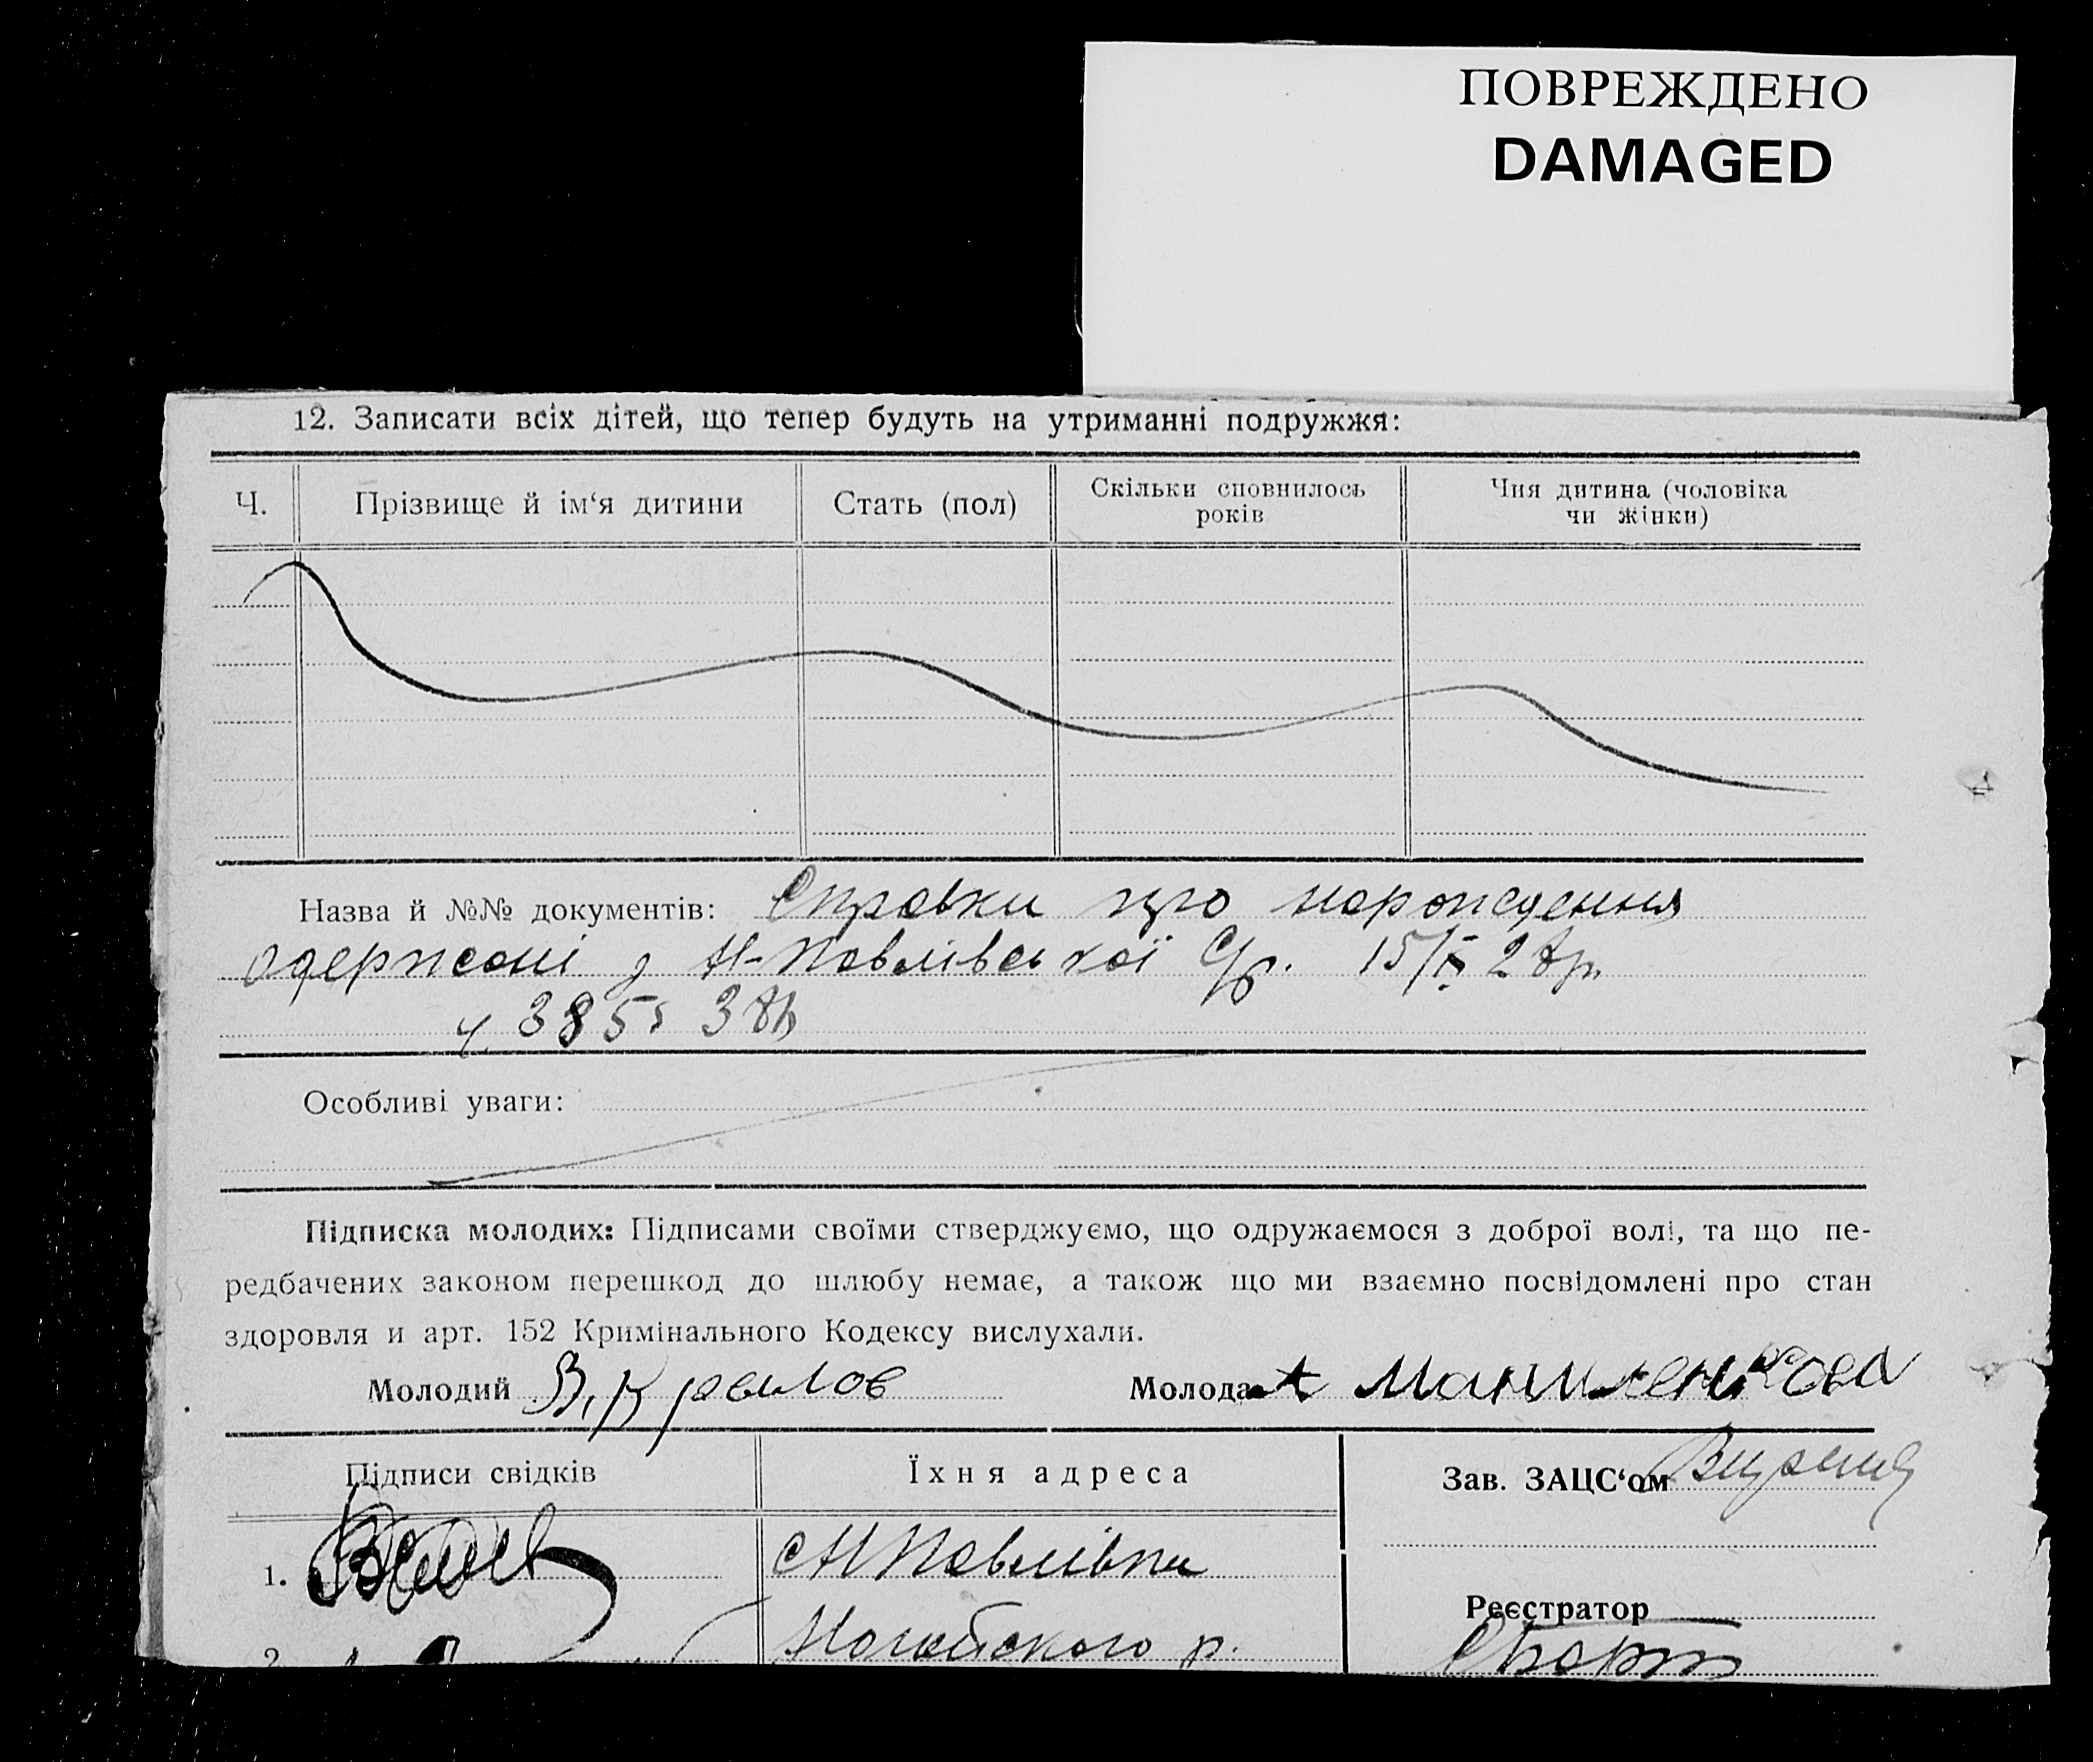 ПОВРЕЖДЕНО
DAMAGED
12. Записати всіх дітей, що тепер будуть на утриманні подружжя:
Ч.
Прізвище й ім‘я дитини
Стать (пол)
Скільки сповнилось
років
Чия дитина (чоловіка
чи жінки)
Назва й №№ документів: Справки про нарождення
одержані з Н-Павлівської С/р. 15/ІХ 28р.
ч. 385
Особливі уваги:
Підписка молодих: Підписами своїми стверджуємо, що одружаємося з доброї волі, та що пе-
редбачених законом перешкод до шлюбу немає, а також що ми взаємно посвідомлені про стан
здоровля и арт. 152 Кримінального Кодексу вислухали.
Молодий В. Кравлов
Молода А Маниленкова
Підписи свідків
Їхня адреса
Зав. ЗАЦС‘ом
1.
с Н Павлівки
Реєстратор
2.
Ногайского р.